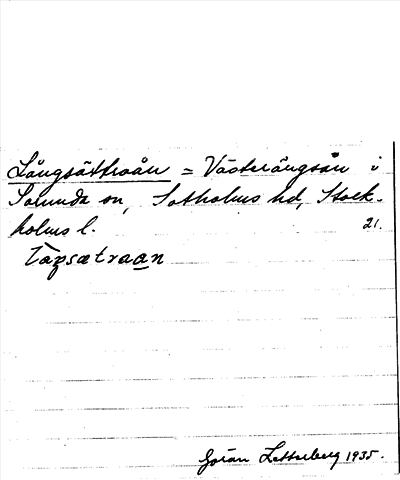 Långsättraån = Västerängsån i
Sorunda sn, Sotholms hd, Stock-
holms l. 21.
Göran Zetterberg 1935.